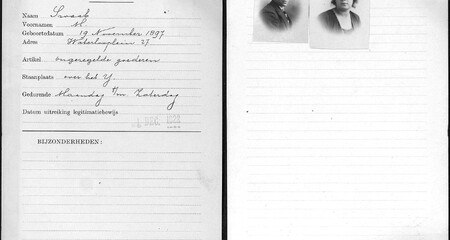 Naam Swaab
Voornamen M.
Geboortedatum 19 November 1897
Adres Waterlooplein 37
Artikel ongeregelde goederen
Staanplaats over het Y.
Gedurende Maandag t/m. Zaterdag
Datum uitreiking legitimatiebewijs DEC.
BIJZONDERHEDEN: